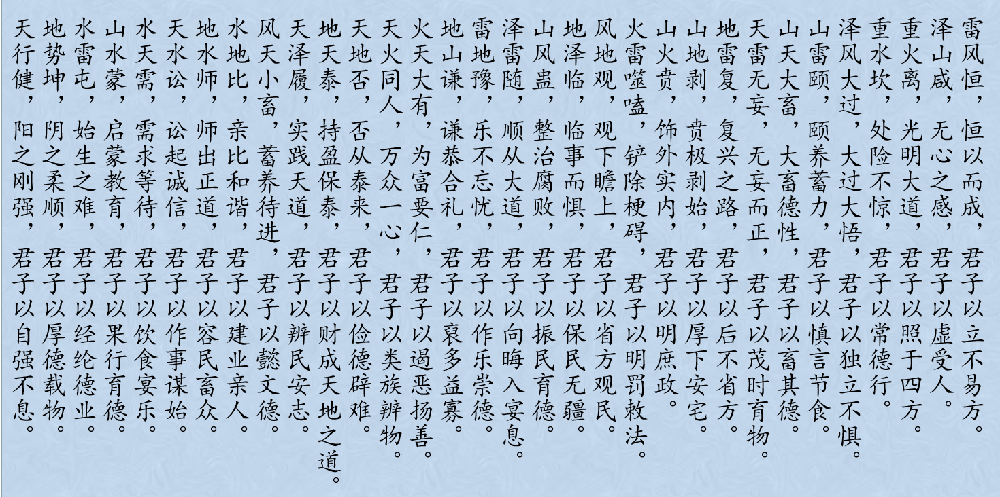 天行健，阳之刚强，君子以自强不息。
地势坤，阴之柔顺，君子以厚德载物。
水雷屯，始生之难，君子以经纶德业。
山水蒙，启蒙教育，君子以果行育德。
水天需，需求等待，君子以饮食宴乐。
天水讼，讼起诚信，君子以作事谋始。
地水师，师出正道，君子以容民畜众。
水地比，亲比和谐，君子以建业亲人。
风天小畜，蓄养待进，君子以懿文德。
天泽履，实践天道，君子以辨民安志。
地天泰，持盈保泰，君子以财成天地之道。
天地否，否从泰来，君子以俭德辟难。
天火同人，万众一心，君子以类族辨物。
火天大有，为富要仁，君子以遏恶扬善。
地山谦，谦恭合礼，君子以裒多益寡。
雷地豫，乐不忘忧，君子以作乐崇德。
泽雷随，顺从大道，君子以向晦入宴息。
山风蛊，整治腐败，君子以振民育德。
地泽临，临事而惧，君子以保民无疆。
风地观，观下瞻上，君子以省方观民。
火雷噬嗑，铲除梗碍，君子以明罚敕法。
山火贲，饰外实内，君子以明庶政。
山地剥，贲极剥始，君子以厚下安宅。
地雷复，复兴之路，君子以后不省方。
天雷无妄，无妄而正，君子以茂时育物。
山天大畜，大畜德性，君子以畜其德。
山雷颐，颐养蓄力，君子以慎言节食。
泽风大过，大过大悟，君子以独立不惧。
重水坎，处险不惊，君子以常德行。
重火离，光明大道，君子以照于四方。
泽山咸，无心之感，君子以虚受人。
雷风恒，恒以而成，君子以立不易方。